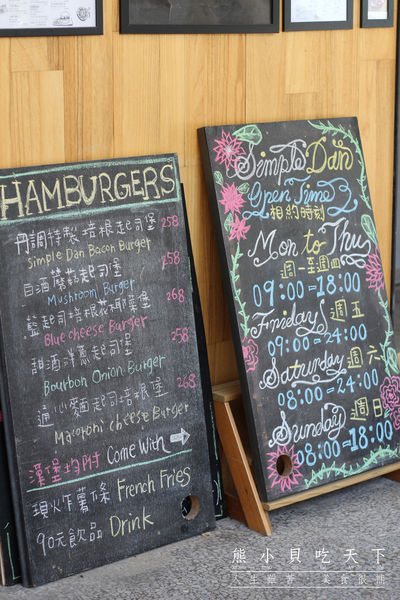 HAMBURGERS
丹調特製培根起司堡 258
Simple Dan Bacon Burger
白酒蘑菇起司堡 258
Mushroom Burger
藍起司培根花椰菜堡 268
Blue cheese Burger
甜酒洋蔥起司堡 258
Bourbon Onion Burger
通心麵起司培根堡 268
Macaroni cheese Burger
漢堡均附 Come With →
現炸薯條 French Fries
90元飲品 Drink
Simple Dan
Open Time
相約時刻
Mon to Thu
週一至週四
09:00=18:00
Friday 週五
09:00=24:00
Saturday 週六
08:00=24:00
Sunday 週日
08:00=18:00
熊小貝吃天下